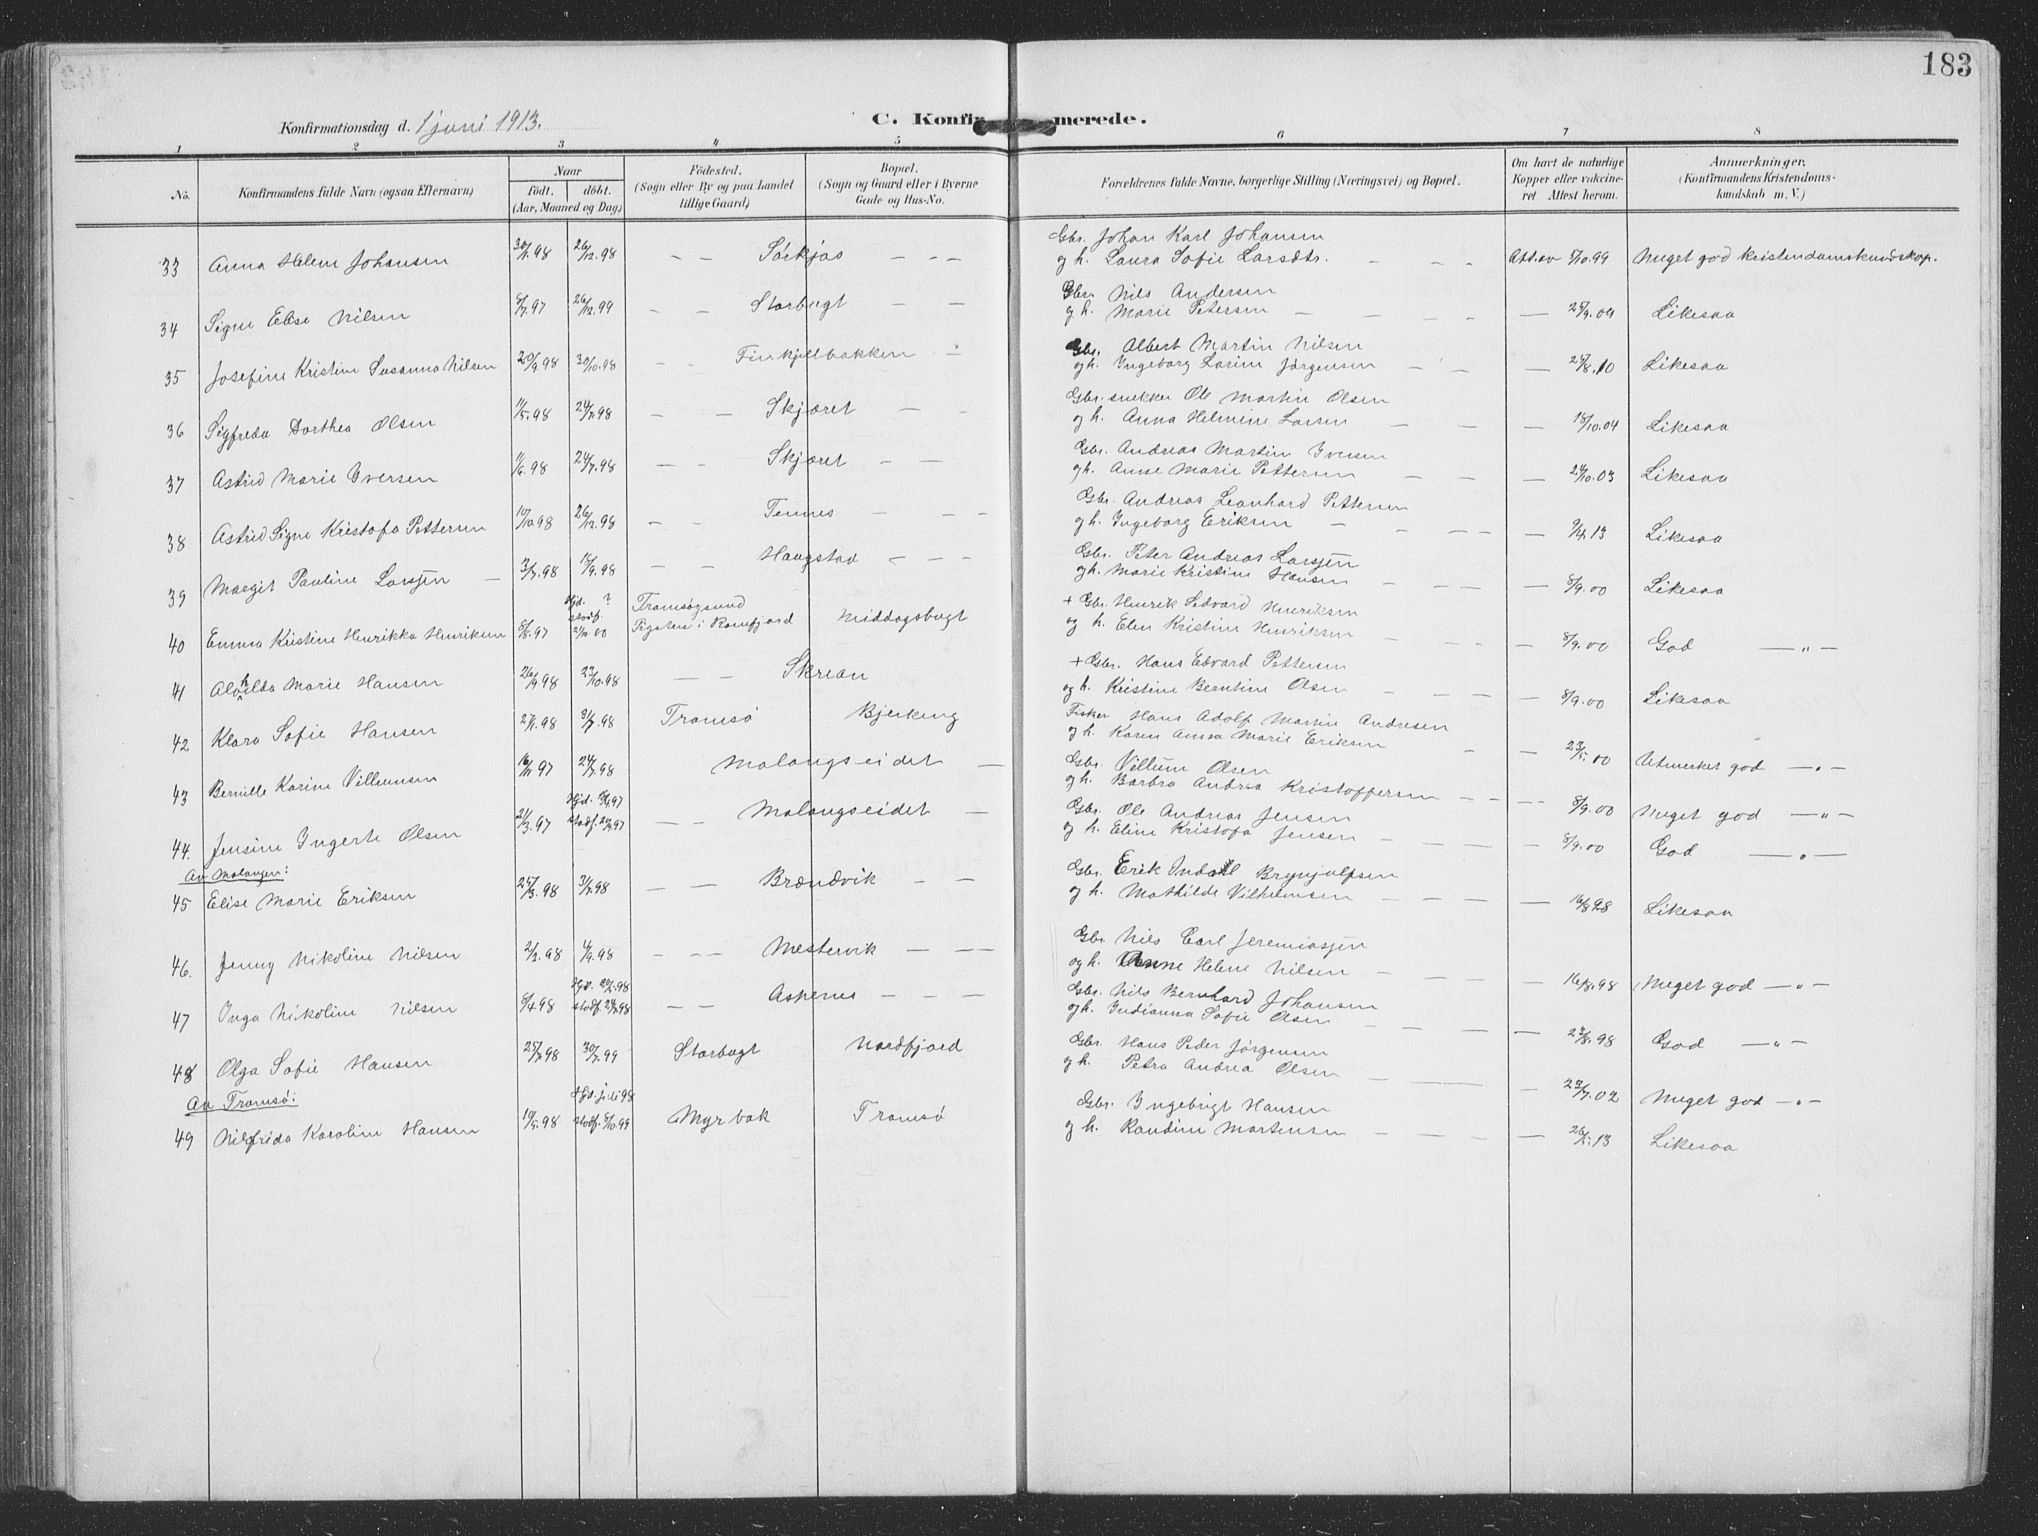 183
Konfirmationsdag d. 1 juni 1913.
C. Konfirmerede.
1 2 3 4 5 6 7 8
No. Konfirmandens fulde Navn (ogsaa Efternavn) Naar født. døbt. (Aar, Maaned og Dag) Fødested. (Sogn eller By og paa Landet tillige Gaard) Bopæl. (Sogn og Gaard eller i Byerne Gade og Hus-No. Forældrenes fulde Navne, borgerlige Stilling (Næringsvei) og Bopæl. Om havt de naturlige Kopper eller vaccineret. Attest herom. Anmærkninger. (Konfirmandens Kristendomskundskab m. V.)
33 Anna Helene Johansen 30/1.98 26/12.98 — — Sørkjos — — — Gbr. Johan Karl Johansen
og h. Laura Sofie Larsdtr. — — — Att. av 5/10.99 Meget god kristendomskundskap.
34 Signe Elise Nilsen 8/7.97 26/12.99 — — Storbugt — — Gbr. Nils Andersen
og h. Marie Petersen — — — — — 25/9.09 Likesaa
35 Josefine Kristine Susanna Nilsen 20/9.98 30/10.98 — — Finkjellbakken — Gbr. Albert Martin Nilsen
og h. Ingeborg Larine Jørgensen — — — 25/8.10 Likesaa
36 Sigfreda Dorthea Olsen 11/5.98 24/7.98 — — Skjæret — — Gbr. snekker Ole Martin Olsen
og h. Anna Helmine Larsen — — — — 18/10.04 Likesaa
37 Astrid Marie Iversen 11/6.98 24/7.98 — — Skjæret — — Gbr. Andreas Martin Iversen
og h. Anne Marie Pettersen — — — — 24/10.03 Likesaa
38 Astrid Signe Kristofa Pettersen 10/10.98 26/12.98 — — Tennes — — — Gbr. Andreas Leonhard Pettersen
og h. Ingeborg Eriksen — — — — — 9/4.13 Likesaa
39 Margit Pauline Larsjen — 3/7.98 18/9.98 — — Haugstad — — — Gbr. Peter Andreas Larsjen
og h. Marie Kristine Hansen — — — — 8/9.00 Likesaa
40 Emma Kristine Henrikka Henriksen 8/8.97 Hjd. ? stadf. 21/10.00 Tromsøysund
i Ramfjord Middagsbugt + Gbr. Henrik Sedvard Henriksen
og h. Elen Kristine Henriksen — — — — 8/9.00 God — „ —
41 Alvhilda Marie Hansen 26/9.98 23/10.98 — — Skrean + Gbr. Hans Edvard Pettersen
og h. Kristine Berntine Olsen — — — — 8/9.00 Likesaa
42 Klara Sofie Hansen 27/1.98 31/7.98 Tromsø Bjerkeng Fisker Hans Adolf Martin Andresen
og h. Karen Anna Marie Eriksen — — 23/5.00 Utmerket god — „ —
43 Bernille Karine Villumsen 16/11.97 24/7.98 Malangseidet — Gbr. Villum Olsen
og h. Barbra Andrea Kristoffersen — — — — 8/9.00 Meget god — „ —
44. Jensine Ingerte Olsen 21/3.97 Hjd. 19/4.97 stadf. 25/7.97 — — Malangseidet — Gbr. Ole Andreas Jensen
og h. Eline Kristofa Jensen — — — — 8/9.00 God — „ —
Av Malangen:
45 Elise Marie Eriksen 25/3.98 31/7.98 — — Brændvik — — Gbr. Erik Indal Brynjulfsen
og h. Mathilde Vilhelmsen — — — — 16/8.98 Likesaa
46. Jenny Nikoline Nilsen 2/2.98 4/9.98 — — — Mestervik — — — Gbr. Nils Carl Jeremiasjen
og h. Anne Helene Nilsen — — — — 16/8.98 Meget god — „ —
47 Inga Nikoline Nilsen 8/4.98 Hjd. 20/5.98 stadf. 24/7.98 — — Aspenes — — — Gbr. Nils Bernhard Johansen
og h. Indianna Sofie Olsen — — — — 23/8.98 God — „ —
48 Olga Sofie Hansen 25/7.98 30/7.99 Storbugt Nordfjord Gbr. Hans Peder Jørgensen
og h. Petra Andrea Olsen — — — — 23/7.02 Meget god — „ —
Av Tromsø:
49 Nilfrida Karoline Hansen 19/5.98 Hjd. juli 98 stadf. 8/10.99 Myrbak Tromsø Gbr. Ingebrigt Hansen
og h. Randine Martensen — — — — 26/5.13 Likesaa